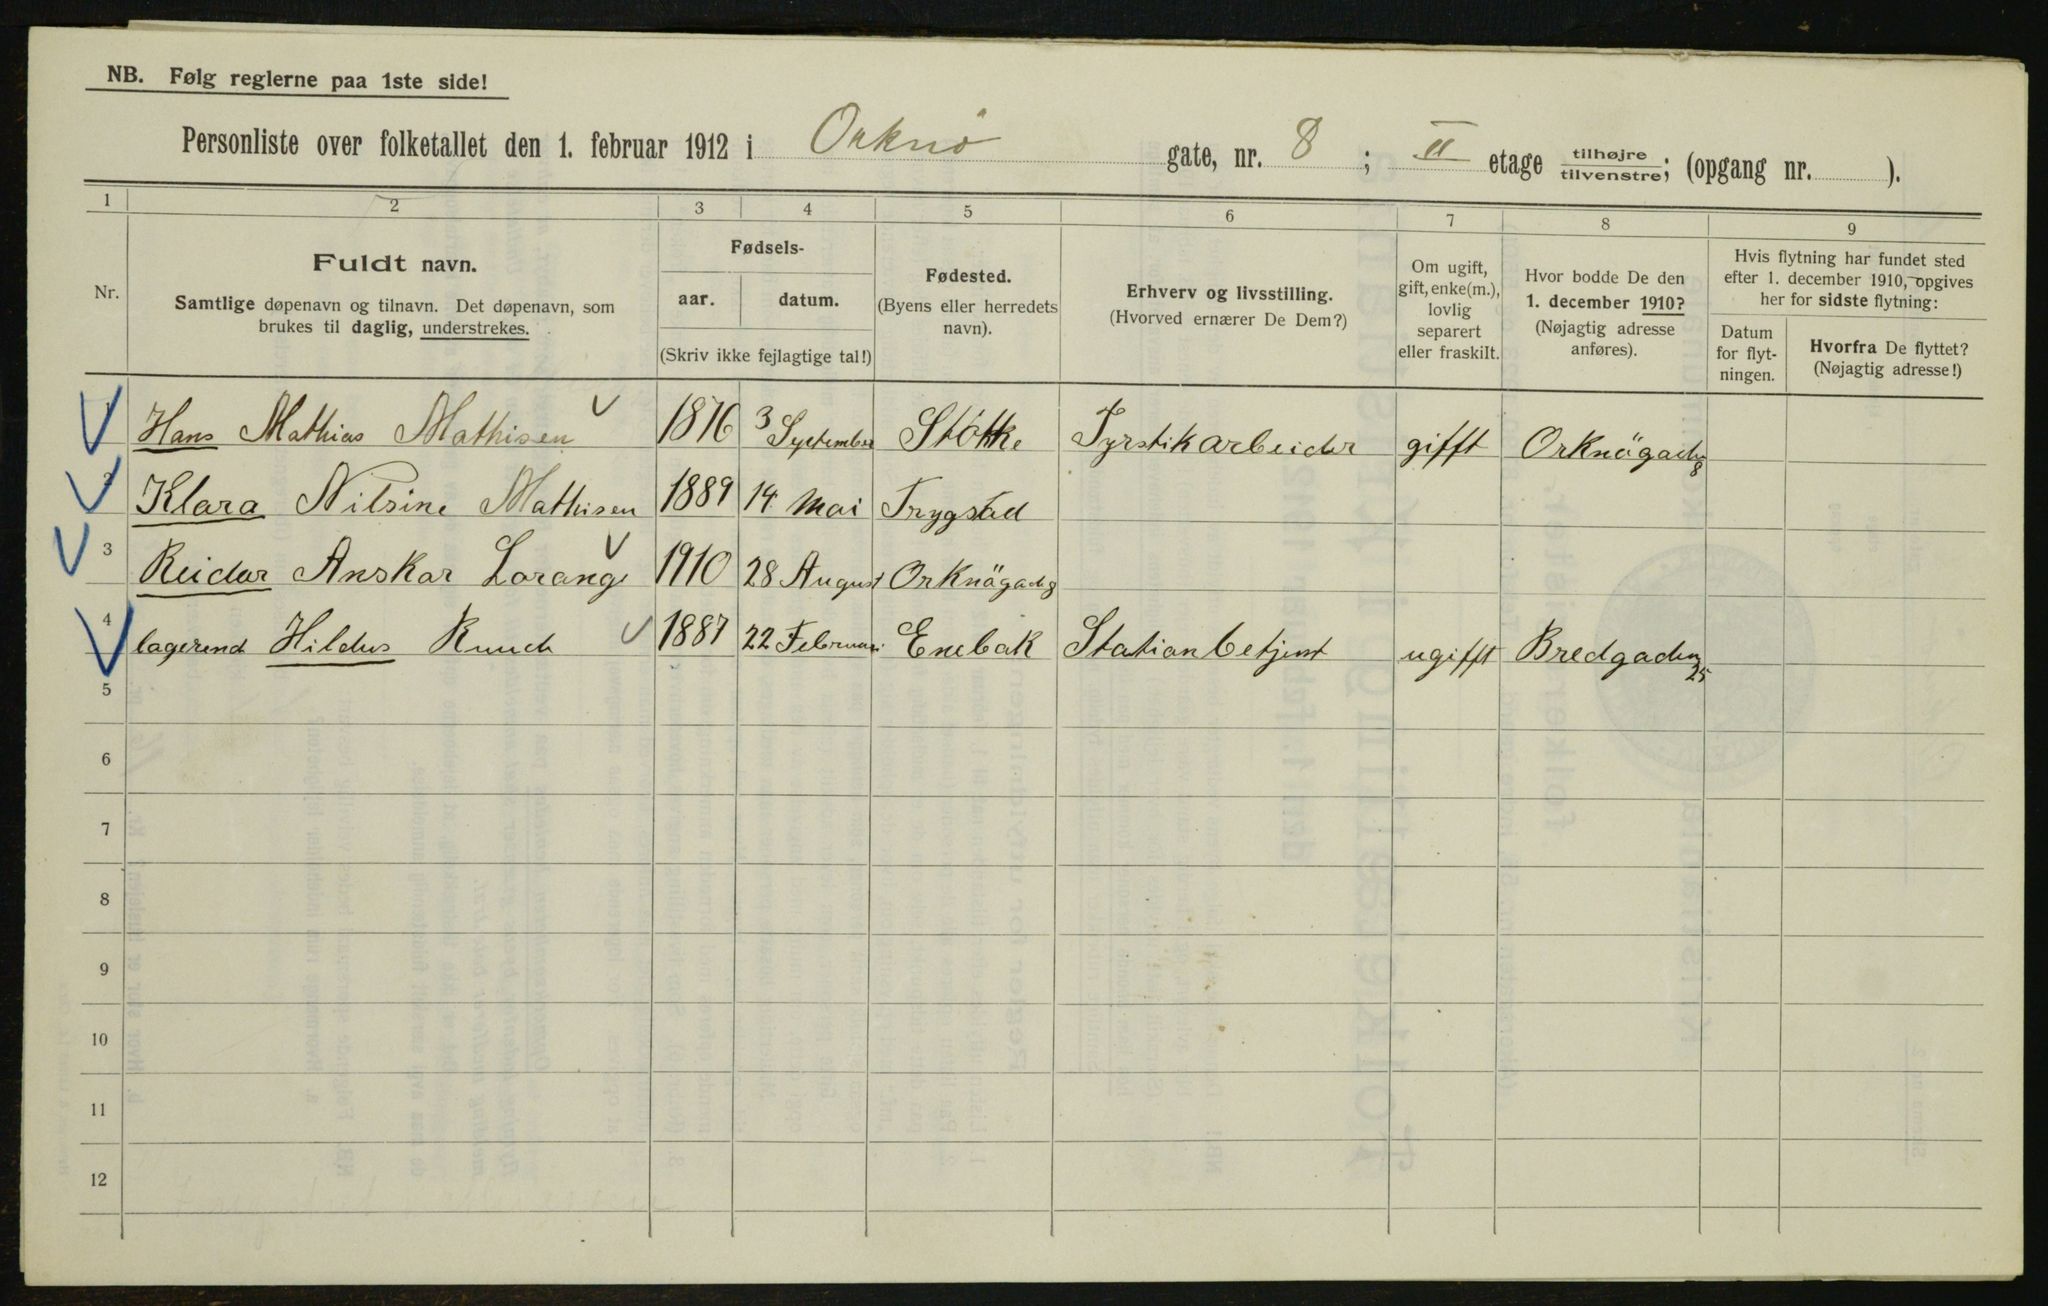 NB. Følg reglerne paa 1ste side!
Personliste over folketallet den 1. februar 1912 i Orknö gate, nr. 8 ; II etage tilhøjre tilvenstre; (opgang nr. ).
1 2 3 4 5 6 7 8 9
Nr.
Fuldt navn.
Samtlige døpenavn og tilnavn. Det døpenavn, som
brukes til daglig, understrekes.
Fødsels-
aar. datum.
(Skriv ikke fejlagtige tal!)
Fødested.
(Byens eller herredets
navn).
Erhverv og livsstilling.
(Hvorved ernærer De Dem?)
Om ugift,
gift, enke(m.),
lovlig
separert
eller fraskilt.
Hvor bodde De den
1. december 1910?
(Nøjagtig adresse
anføres).
Hvis flytning har fundet sted
efter 1. december 1910, opgives
her for sidste flytning:
Datum
for flyt-
ningen.
Hvorfra De flyttet?
(Nøjagtig adresse!)
1 Hans Mathias Mathisen 1876 3 September Stokke Fyrstikarbeider gifft Orknögaden 8
2 Klara Nilsine Mathisen 1889 14 Mai Trygstad
3 Reidar Anskar Lorang 1910 28 August Orknögad 8
4 logerend Hildus Ruud 1887 22 Februar Enebak Stationbetjent ugifft Bredgaden 25
5
6
7
8
9
10
11
12